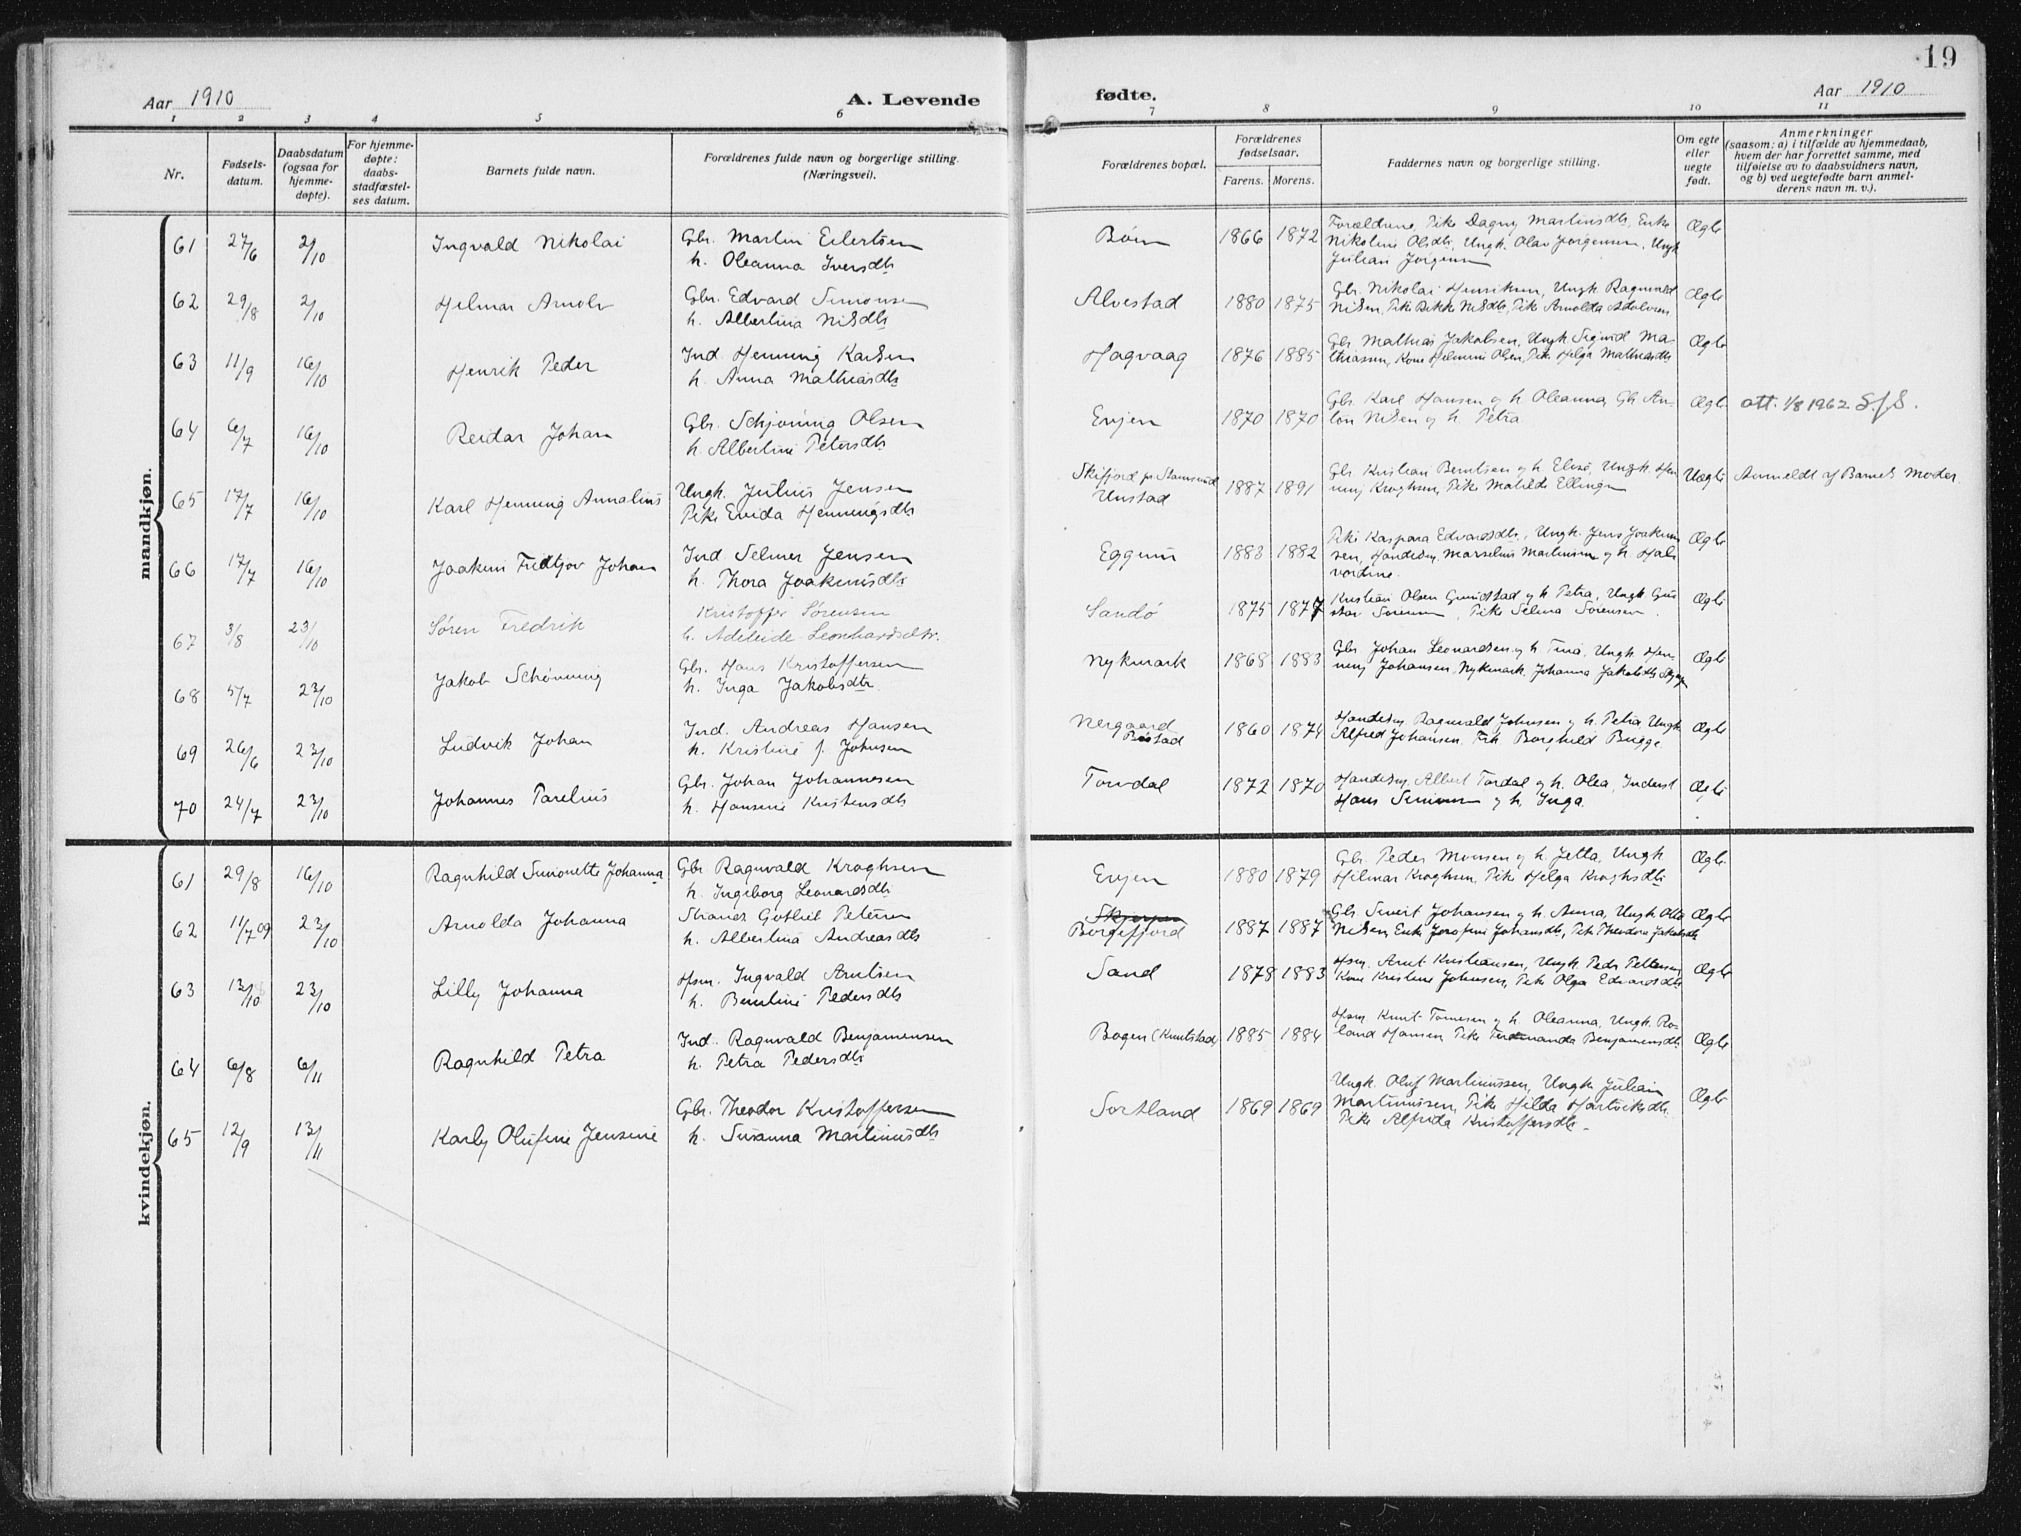 19
Aar 1910
A. Levende
fødte.
Aar 1910
1 2 3 4 5 6 7 8 9 10 11
Nr.
Fødsels-
datum.
Daabsdatum
(ogsaa for
hjemme-
døpte).
For hjemme-
døpte:
daabs-
stadfæstel-
ses datum.
Barnets fulde navn.
Forældrenes fulde navn og borgerlige stilling.
(Næringsvei).
Forældrenes bopæl.
Forældrenes
fødselsaar.
Farens. Morens.
Faddernes navn og borgerlige stilling.
Om egte
eller
uegte
født.
Anmerkninger
(saasom: a) i tilfælde av hjemmedaab,
hvem der har forrettet samme, med
tilføielse av to daabsvidners navn,
og b) ved uegtefødte barn anmel-
derens navn m. v.).
mandkjøn.
61 27/6 2/10 Ingvald Nikolai
Gbr. Martin Eilertsen
h. Oleanna Iversdtr
Böen 1866 1872
Forældrene, Pike Dagny Martinsdtr, Enke
Nikoline Olsdtr, Ungk. Olav Jörgensen, Ungk
Julian Jörgensen
Ægte
62 29/8 2/10 Hilmar Arnolv
Gbr. Edvard Simonsen
h. Albertina Nilsdtr
Alvestad 1880 1875
Gbr. Nikolai Henriksen, Ungk. Ragnvald
Nilsen, Pike Rikke Nilsdtr, Pike Arnolda
Ægte
63 11/9 16/10 Henrik Peder
Ind. Henning Karlsen
h. Anna Mathiasdtr
Hagvaag 1876 1885
Gbr. Mathias Jakobsen, Ungk Sigurd Ma-
thiassen, Kone Helmine Olsen, Pike Helga Mathiasdtr
Ægte
64 6/7 16/10 Reidar Johan
Gbr. Schjöning Olsen
h. Albertine Petersdtr
Evjen 1870 1870
Gbr. Karl Hansen og h Oleanna, Gbr An-
ton Nilsen og h. Petra
Ægte att. 1/8 1962 S.f.S.
65 17/7 16/10 Karl Henning Annalius
Ungk. Julius Jensen
Pike Evida Henningsdtr
Skifjord pr Stamsund
Unstad
1887 1891
Gbr Kristian Berntsen og h. Elise, Ungk Hen-
ning Kroghsen, Pike Matilde Ellingsen
Uægte Anmeldt af Barnets Moder.
66 17/7 16/10 Joakim Fridtjov Johan
Ind. Selmer Jensen
h. Thora Joakimsdtr
Eggum 1883 1882
Pike Kaspara Edvardsdtr, Ungk. Jens Joakim-
sen, Handelsm. Marselius Martinsen og h. Hal-
vordine.
Ægte
67 3/8 23/10 Søren Fredrik
Kristoffer Sørensen
h. Adeleide Leonhardsdtr.
Sandö 1875 1877
Kristian Olsen Grundstad og h Petra, Ungk Gus-
tav Sörensen, Pike Selma Sörensen.
Ægte
68 5/7 23/10 Jakob Schönning
Gbr. Hans Kristoffersen
h. Inga Jakobsdtr
Nykmark 1868 1883
Gbr Johan Leonardsen og h Tina, Ungk Hen-
ning Johansen, Nykmark, Johanna Jakobsdtr
Ægte
69 26/6 23/10 Ludvik Johan
Ind. Andreas Hansen
h. Kristine f. Johnsen
Nergaard
Bøstad
1860 1874
Handelsm Ragnvald Johnsen og h. Petra, Ungk
Alfred Johansen, Frk Borghild Bugge.
Ægte
70 24/7 23/10 Johannes Parelius
Gbr. Johan Johannesen
h. Hansine Kristensdtr
Torvdal 1872 1870
Handelsm Albert Tordal og h. Olea, Inderst
Hans Simonsen og h. Inga
Ægte
kvindekjøn.
61 29/8 16/10 Ragnhild Simonette Johanna
Gbr Ragnvald Kroghsen
h. Ingeborg Leonardsdtr
Evjen 1880 1879
Gbr. Peder Monsen og h. Jetta, Ungk
Hilmar Kroghsen, Pike Helga Kroghsdtr
Ægte
62 11/7 09 23/10 Arnolda Johanna
Gotlieb Petersen
h. Albertina Andreasdtr
Borgefjord 1887 1887
Gbr Sivert Johansen og h. Anna, Ungk Olai
Nilsen, Enke Josefine Johansdtr, Pike Theodora Jakobsdtr
Ægte
63 13/10 23/10 Lilly Johanna
Hsm. Ingvald Arntsen
h. Berntine Pedersdtr
Sand 1878 1883
Hsm. Arnt Kristiansen, Ungk. Peder Pettersen,
Kone Kristine Johnsen, Pike Olga Edvardsdtr
Ægte
64 6/8 6/11 Ragnhild Petra
Ind. Ragnvald Benjaminsen
h. Petra Pedersdtr
Bogen (Knutstad) 1885 1884
Hsm. Knut Tomesen og h. Oleanna, Ungk. Ro-
land Hansen Pike Ferdinanda Benjaminsdtr
Ægte
65 12/9 13/11 Karly Olufine Jensine
Gbr. Theodor Kristoffersen
h. Susanna Martinusdtr
Sortland 1869 1869
Ungk. Oluf Martinussen, Ungk Julian
Martinussen, Pike Hilda Hartviksdtr
Pike Alfrida Kristoffersdtr.
Ægte